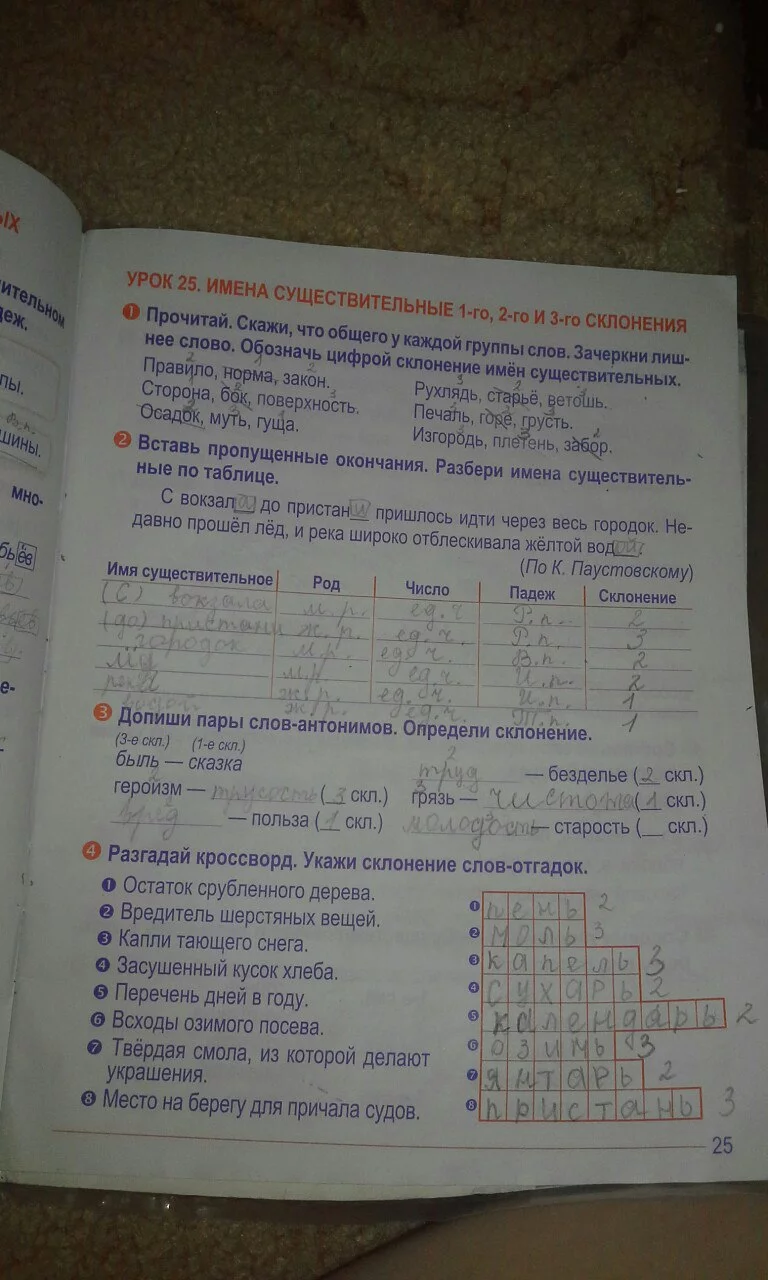 ЫХ
ительном
деж.
пы.
шины.
мно-
бьёв
е-
УРОК 25. ИМЕНА СУЩЕСТВИТЕЛЬНЫЕ 1-го, 2-го И 3-го СКЛОНЕНИЯ
1 Прочитай. Скажи, что общего у каждой группы слов. Зачеркни лиш-
нее слово. Обозначь цифрой склонение имён существительных.
Правило, норма, закон.
Сторона, бок, поверхность.
Осадок, муть, гуща.
Рухлядь, старьё, ветошь.
Печаль, горе, грусть.
Изгородь, плетень, забор.
2 Вставь пропущенные окончания. Разбери имена существитель-
ные по таблице.
С вокзала до пристани пришлось идти через весь городок. Не-
давно прошёл лёд, и река широко отблескивала жёлтой водой.
(По К. Паустовскому)
Имя существительное Род Число Падеж Склонение
(С) вокзала м.р. ед.ч Р.п. 2
(до) пристани ж.р. ед.ч. Р.п. 3
городок м.р. ед.ч. В.п. 2
лёд м.р. ед.ч. И.п. 2
река ж.р. ед.ч. И.п. 1
водой ж.р. ед.ч. Т.п. 1
3 Допиши пары слов-антонимов. Определи склонение.
(3-е скл.) (1-е скл.)
быль — сказка
героизм — трусость (3 скл.)
вред — польза (1 скл.)
труд — безделье (2 скл.)
грязь — чистота (1 скл.)
молодость — старость (__ скл.)
4 Разгадай кроссворд. Укажи склонение слов-отгадок.
1 Остаток срубленного дерева.
2 Вредитель шерстяных вещей.
3 Капли тающего снега.
4 Засушенный кусок хлеба.
5 Перечень дней в году.
6 Всходы озимого посева.
7 Твёрдая смола, из которой делают
украшения.
8 Место на берегу для причала судов.
1 пень 2
2 моль 3
3 капель 3
4 сухарь 2
5 календарь 2
6 озимь 3
7 янтарь 2
8 пристань 3
25